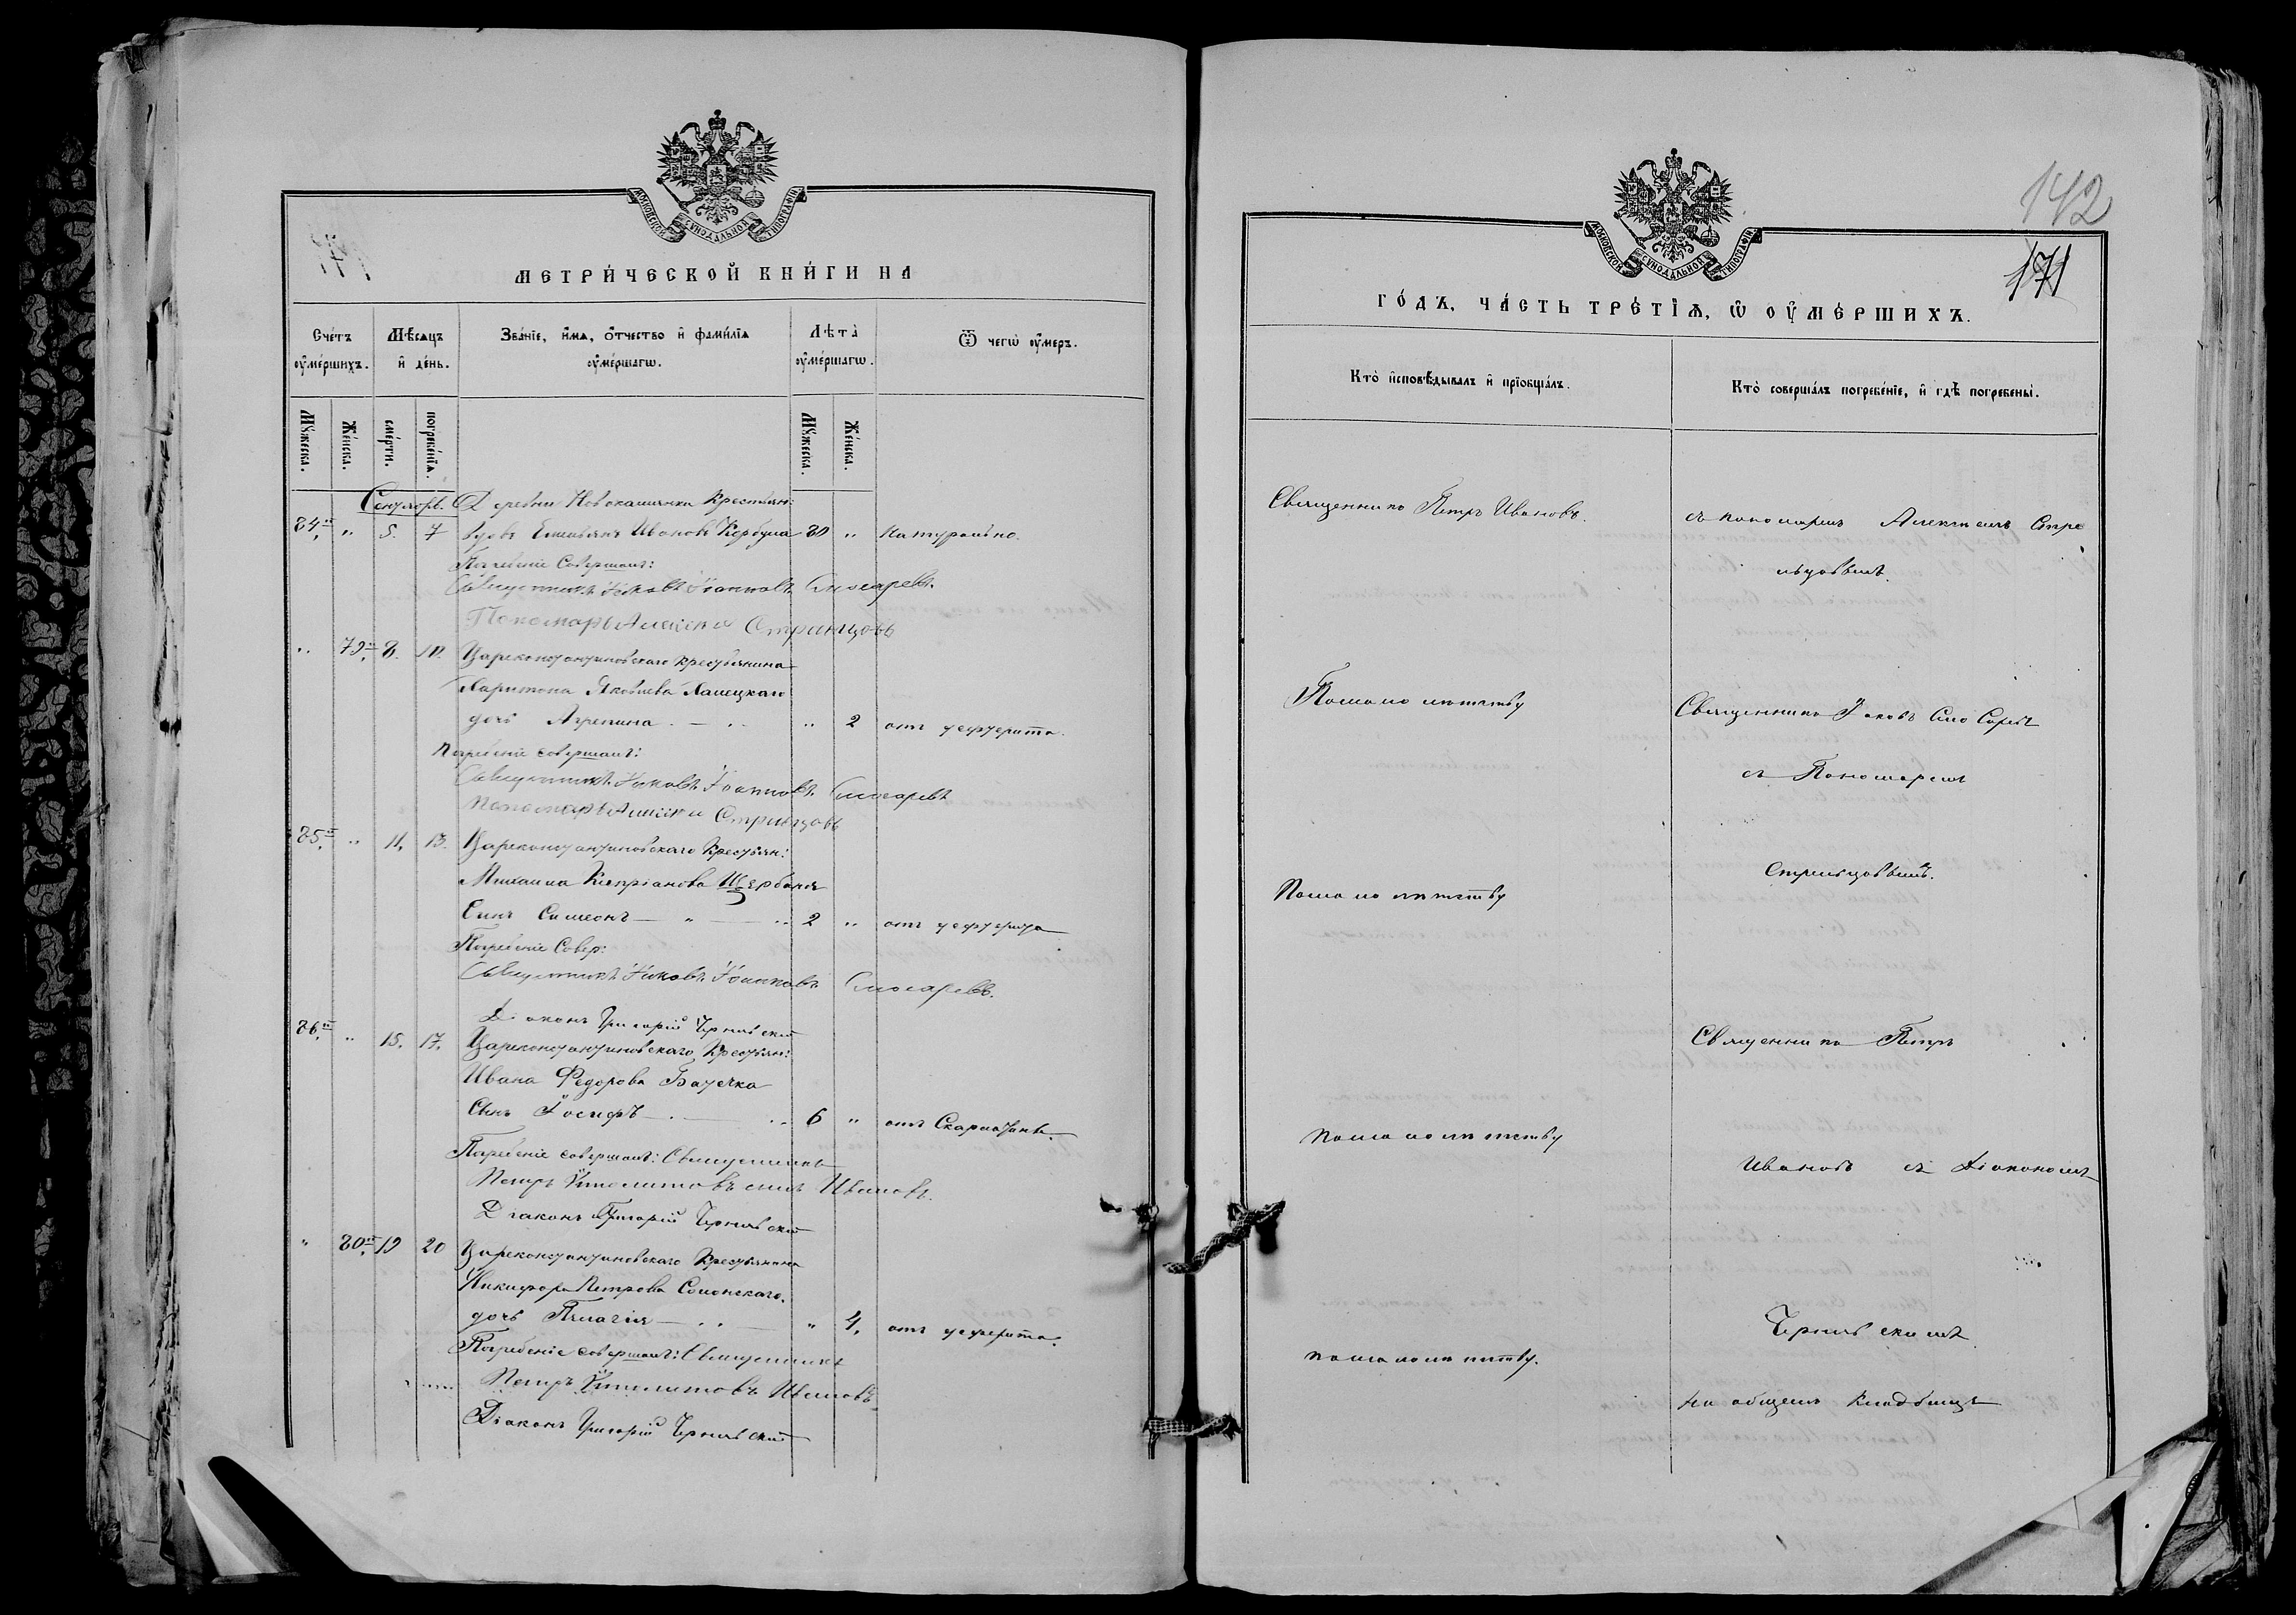 МОСКОВСКОЙ СУНОДАЛЬНОЙ ТИПОГРАФІИ
МЕТРИ́ЧЕСКОЙ КНИ́ГИ НА
Сче́тъ ᲂу҆ме́ршихъ.
Мѣ́сяцъ и҆ де́нь.
Зва́нїе, и҆́мѧ, ѻ҆́тчество и҆ фами́лїѧ ᲂу҆ме́ршагѡ.
Лѣ́та ᲂу҆ме́ршагѡ.
Ѿ чегѡ̀ ᲂу҆́меръ.
Мꙋ́жеска.
Же́нска.
сме́рти.
погребе́нїѧ.
Мꙋ́жеска.
Же́нска.
Сентябрь. Деревни Новокашинки Крестьян:
84. " 5. 7 вдовъ Емельянъ Ивановъ 80 " Натурально.
Погребеніе Совершалъ:
Священникъ Іаковъ Іоанновъ Слюсаревъ.
Пономарь Алексѣй Стрильцовъ
" 79. 8. 10. Цареконстантиновскаго крестьянина
Харитона Яковлева
дочь Агрепина " 2 отъ дефтерита.
Погребеніе совершалъ:
Священникъ Іаковъ Іоанновъ Слюсаревъ
Пономарь Алексѣй Стрильцовъ
85. " 11. 13. Цареконстантиновскаго Крестьян:
Михаила Кипріанова Щербаня
Сынъ Симеонъ 2 " отъ дефтерита
Погребеніе Совер:
Священникъ Іаковъ Іоанновъ Слюсаревъ.
Діаконъ Григорій Чернявскій
86. " 15. 17. Цареконстантиновскаго Крестьян:
Ивана Федорова
Сынъ Іосифъ 6 " отъ Скарлатины.
Погребеніе совершалъ: Священникъ
Петръ Ипполитовъ сынъ Ивановъ.
Діаконъ Григорій Чернявскій
" 80. 19 20 Цареконстантиновскаго Крестьянина
Никифора Петрова
дочь Пелагія " 4. отъ дефтерита.
Погребеніе совершалъ: Священникъ
Петръ Ипполитовъ Ивановъ.
Діаконъ Григорій Чернявскій
МОСКОВСКОЙ СУНОДАЛЬНОЙ ТИПОГРАФІИ
142
171
ГО́ДЪ, ЧА́СТЬ ТРЕ́ТЇѦ, Ѡ҆ ᲂУ҆МЕ́РШИХЪ.
Кто̀ и҆сповѣ́дывалъ и҆ прїобща́лъ.
Кто̀ соверша́лъ погребе́нїе, и҆ гдѣ̀ погребены̀.
Священникъ Петръ Ивановъ.
съ пономаремъ Алексѣемъ Стри
льцовымъ.
По малолѣтству
Священникъ Іаковъ Слюсаревъ
съ Пономаремъ
Стрильцовымъ.
По малолѣтству
Священникъ Петръ
По малолѣтству
Ивановъ съ Діакономъ
Чернявскимъ
По малолѣтству.
На общемъ Кладбищѣ